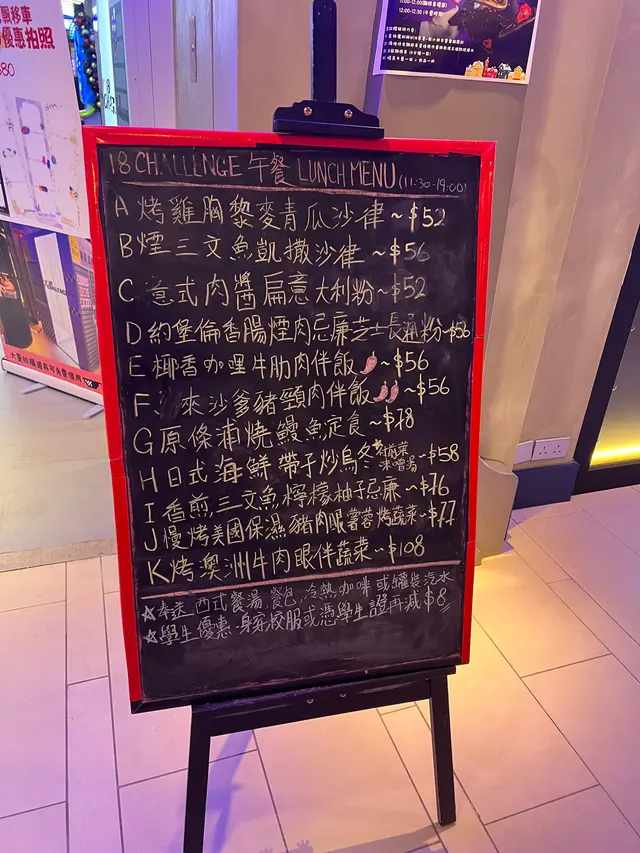 飄移車
優惠拍照
11:00-12:00
12:00-12:30
大量拍攝道具可免費借用
18 CHALLENGE 午餐 LUNCH MENU (11:30-19:00)
A 烤雞胸藜麥青瓜沙律~$52
B 煙三文魚凱撒沙律~$56
C 意式肉醬扁意大利粉~$52
D 約堡倫香腸煙肉忌廉芝士長通粉~$56
E 椰香咖哩牛肋肉伴飯 ~$56
F 來沙爹豬頸肉伴飯 ~$56
G 原條浦燒鰻魚定食~$78
H 日式海鮮帶子炒烏冬 *配前菜 味噌湯 ~$58
I 香煎三文魚,檸檬柚子忌廉~$76
J 慢烤美國保濕豬肉眼薯蓉烤蔬菜~$77
K 烤澳洲牛肉眼伴蔬菜~$108
☆奉送 西式餐湯,餐包,冷熱咖啡或罐裝汽水
☆學生優惠 身穿校服或憑學生證再減$8